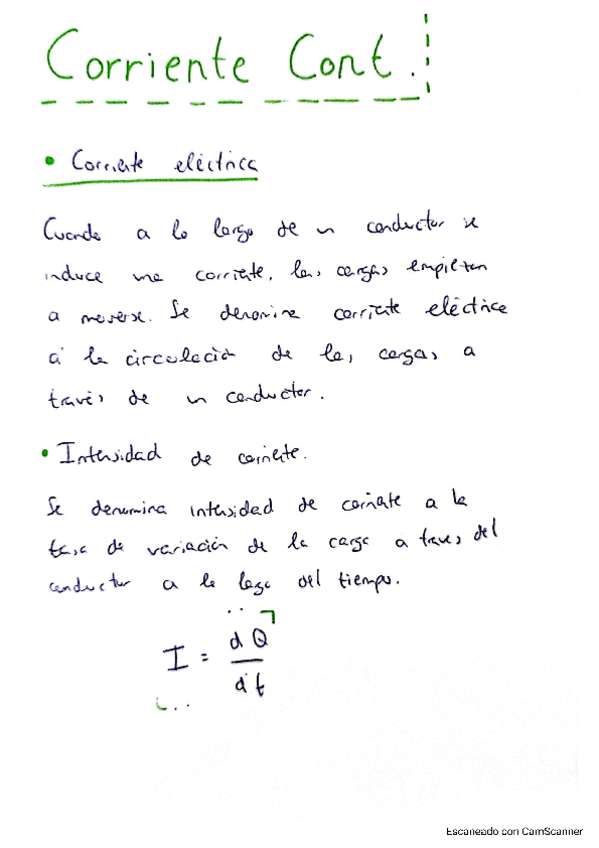 Corriente Cont.
• Corriente eléctrica
Cuando a lo largo de un conductor se
induce una corriente, las cargas empiezan
a moverse. Se denomina corriente eléctrica
a la circulación de las cargas a
través de un conductor.
• Intensidad de corriente.
Se denomina intensidad de corriente a la
tasa de variación de la carga a traves del
conductor a lo largo del tiempo.
I = dQ/dt
Escaneado con CamScanner